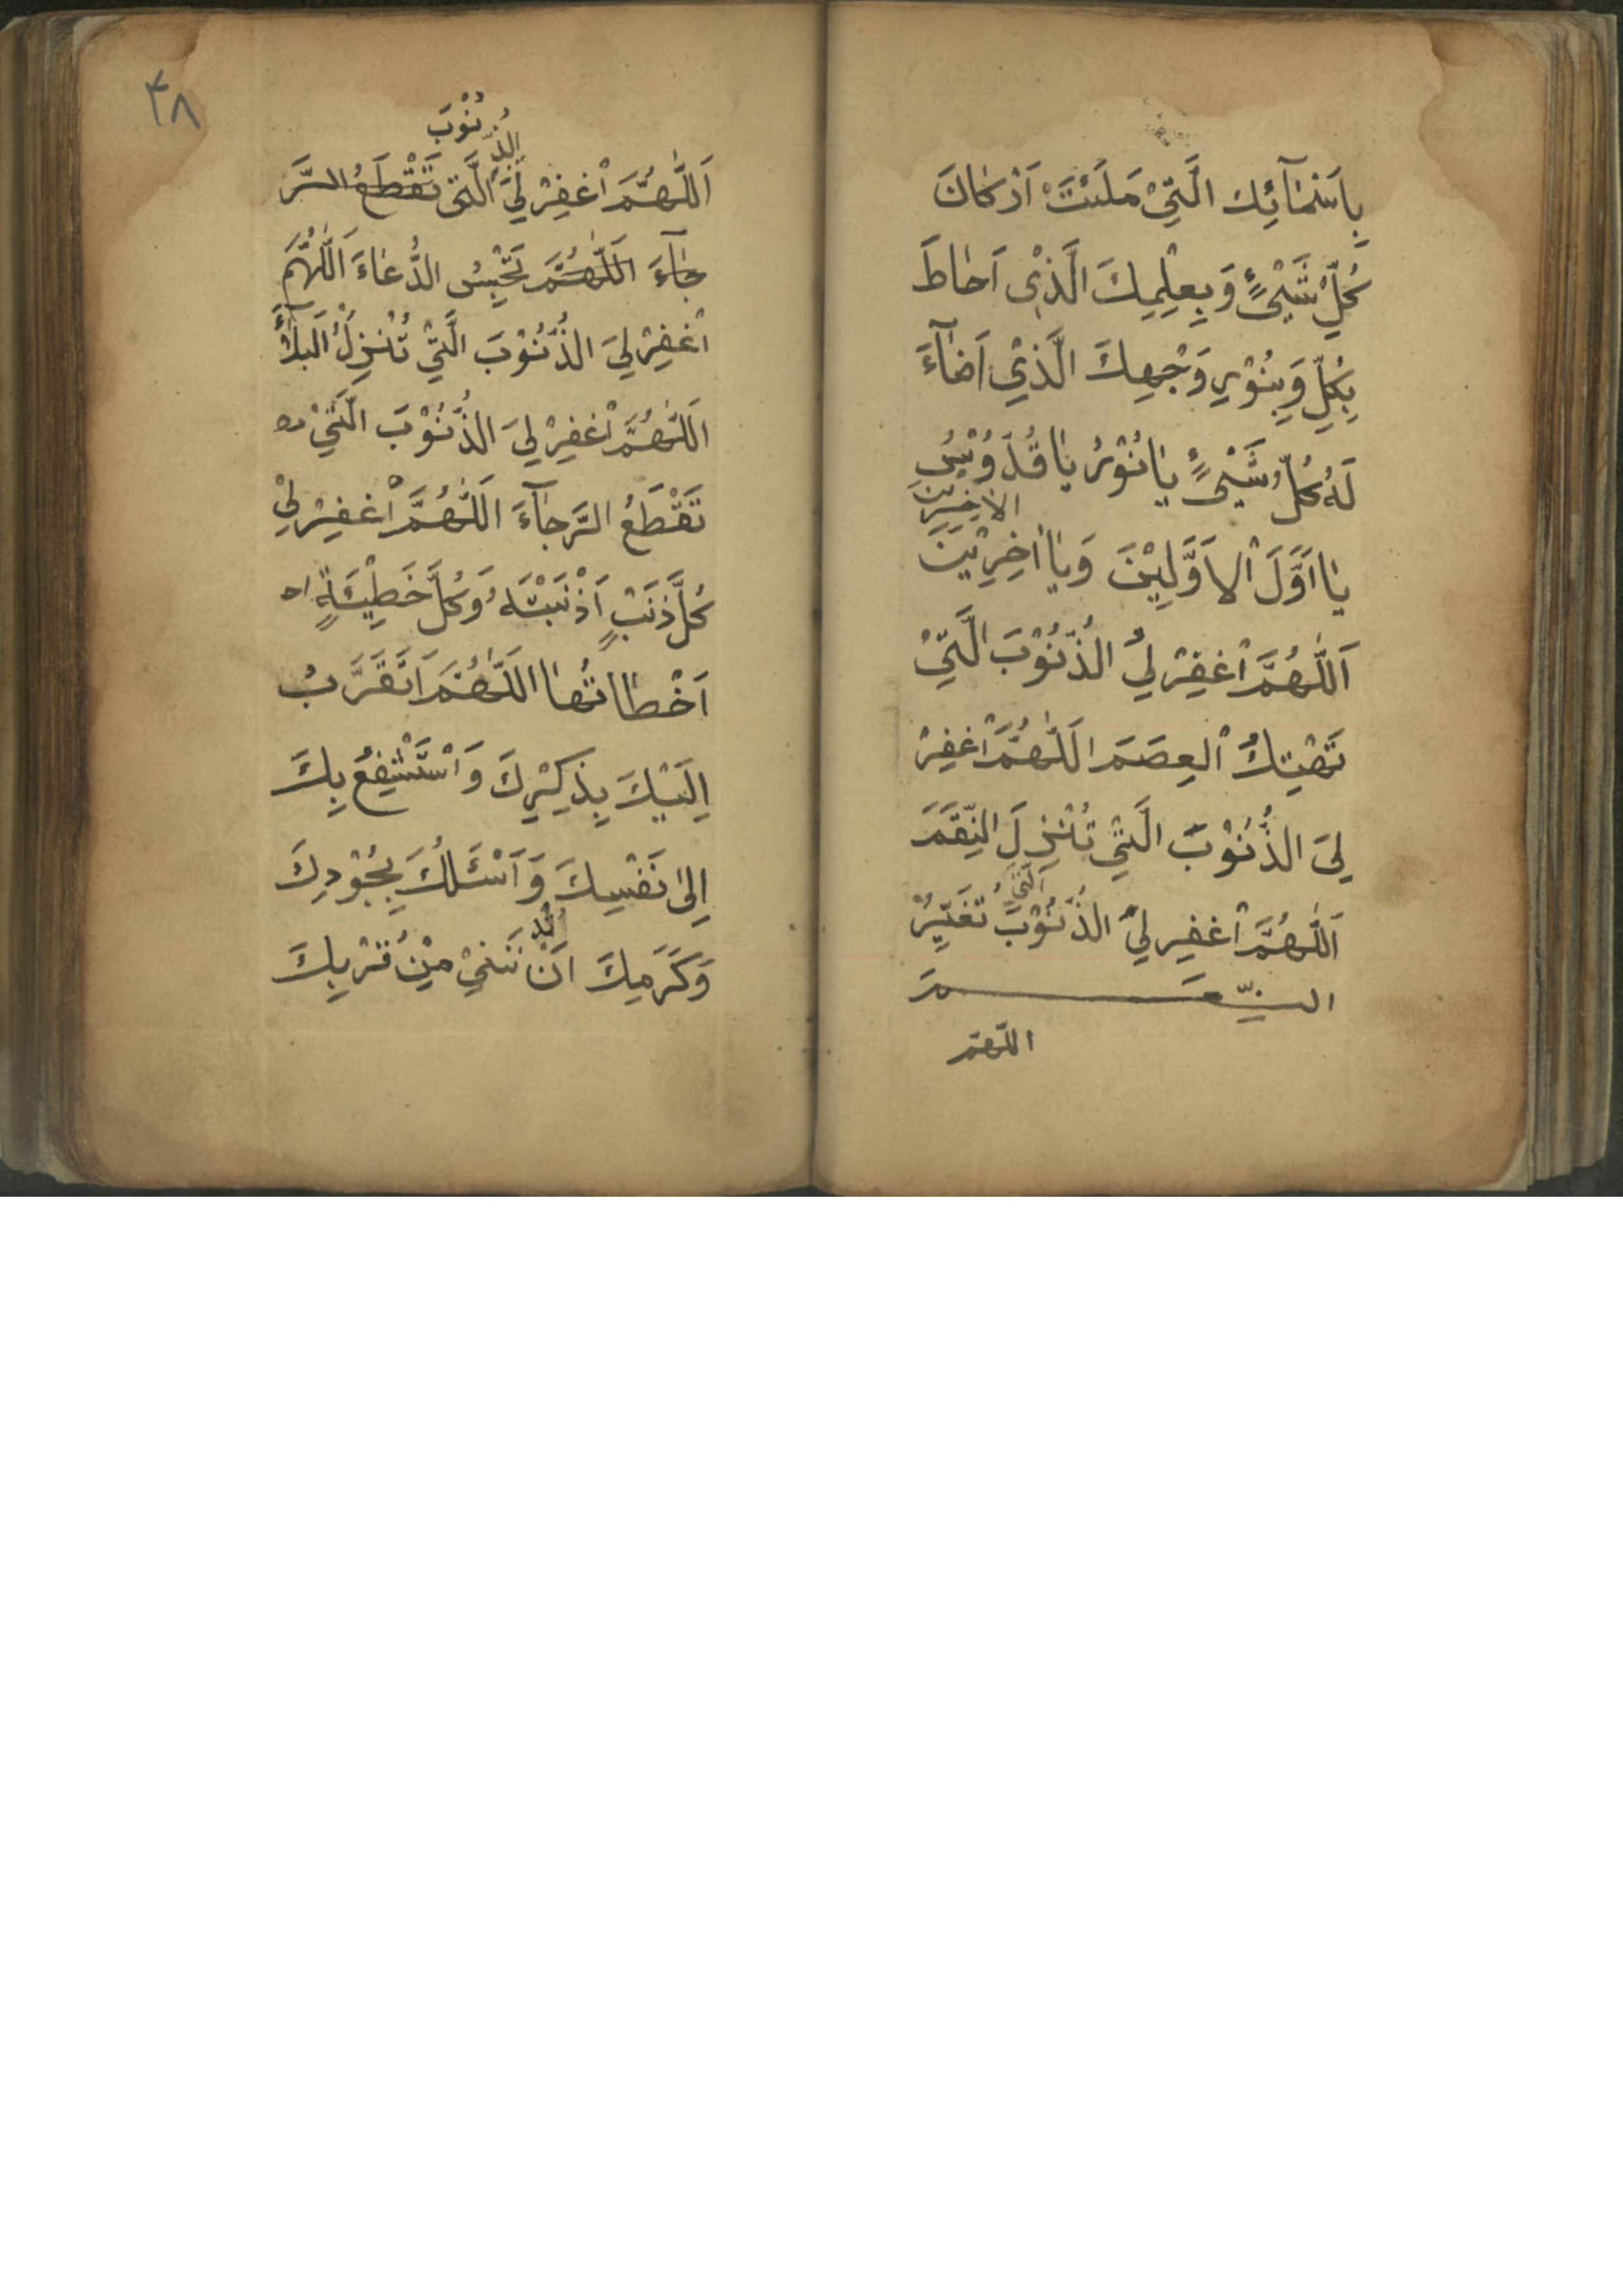 بِاَسْمَآئِكَ الَّتِيْ مَلَئَتْ اَرْكَانَ
كُلِّ شَيْیءٍ وَبِعِلْمِكَ الَّذِيْ اَحَاطَ
بِكُلِّ وَبِنُوْرِ وَجْهِكَ الَّذِيْ اَضَآءَ
لَهُ كُلُّ شَيْیءٍ يَا نُوْرُ يَا قُدُّوْسُ
الاخِرِيْنَ
يَا اَوَّلَ الْاَوَّلِيْنَ وَيَا اٰخِرِيْنَ
اَللّٰهُمَّ اغْفِرْ لِيَ الذُّنُوْبَ الَّتِيْ
تَهْتِكُ الْعِصَمَ اَللّٰهُمَّ اغْفِرْ
لِيَ الذُّنُوْبَ الَّتِيْ تُنْزِلَ النِّقَمَ
الَّتِي
اَللّٰهُمَّ اغْفِرلِيَ الذُّنُوْبَ تُغَيِّرُ
النِّعَمَ
اللّهمّ
۴۸
الذُّنُوْبَ
اَللّٰهُمَّ اغْفِرْ لِيَ الَّتِيْ تَقْطَعُ الرَّ
جَآءَ اَللّٰهُمَّ تَحْبِسُ الدُّعَاءَ اَللّٰهُمَّ
اغْفِرْ لِيَ الذُّنُوْبَ الَّتِيْ تُنْزِلُ الْبَلَآءَ
اَللّٰهُمَّ اغْفِرْ لِيَ الذُّنُوْبَ الَّتِيْ
تَقْطَعُ الرَّجَآءَ اَللّٰهُمَّ اغْفِرْ لِيْ
كُلَّ ذَنْبٍ اَذْنَبْتُهُ وَكُلَّ خَطِيْئَةٍ
اَخْطَاتُهَا اَللّٰهُمَّ اَتَقَرَّبُ
اِلَيْكَ بِذِكْرِكَ وَاَسْتَشْفِعُ بِكَ
اِلىٰ نَفْسِكَ وَاَسْئَلُكَ بِجُوْدِكَ
وَكَرَمِكَ اَنْ نَنِيْ مِنْ قُرْبِكَ